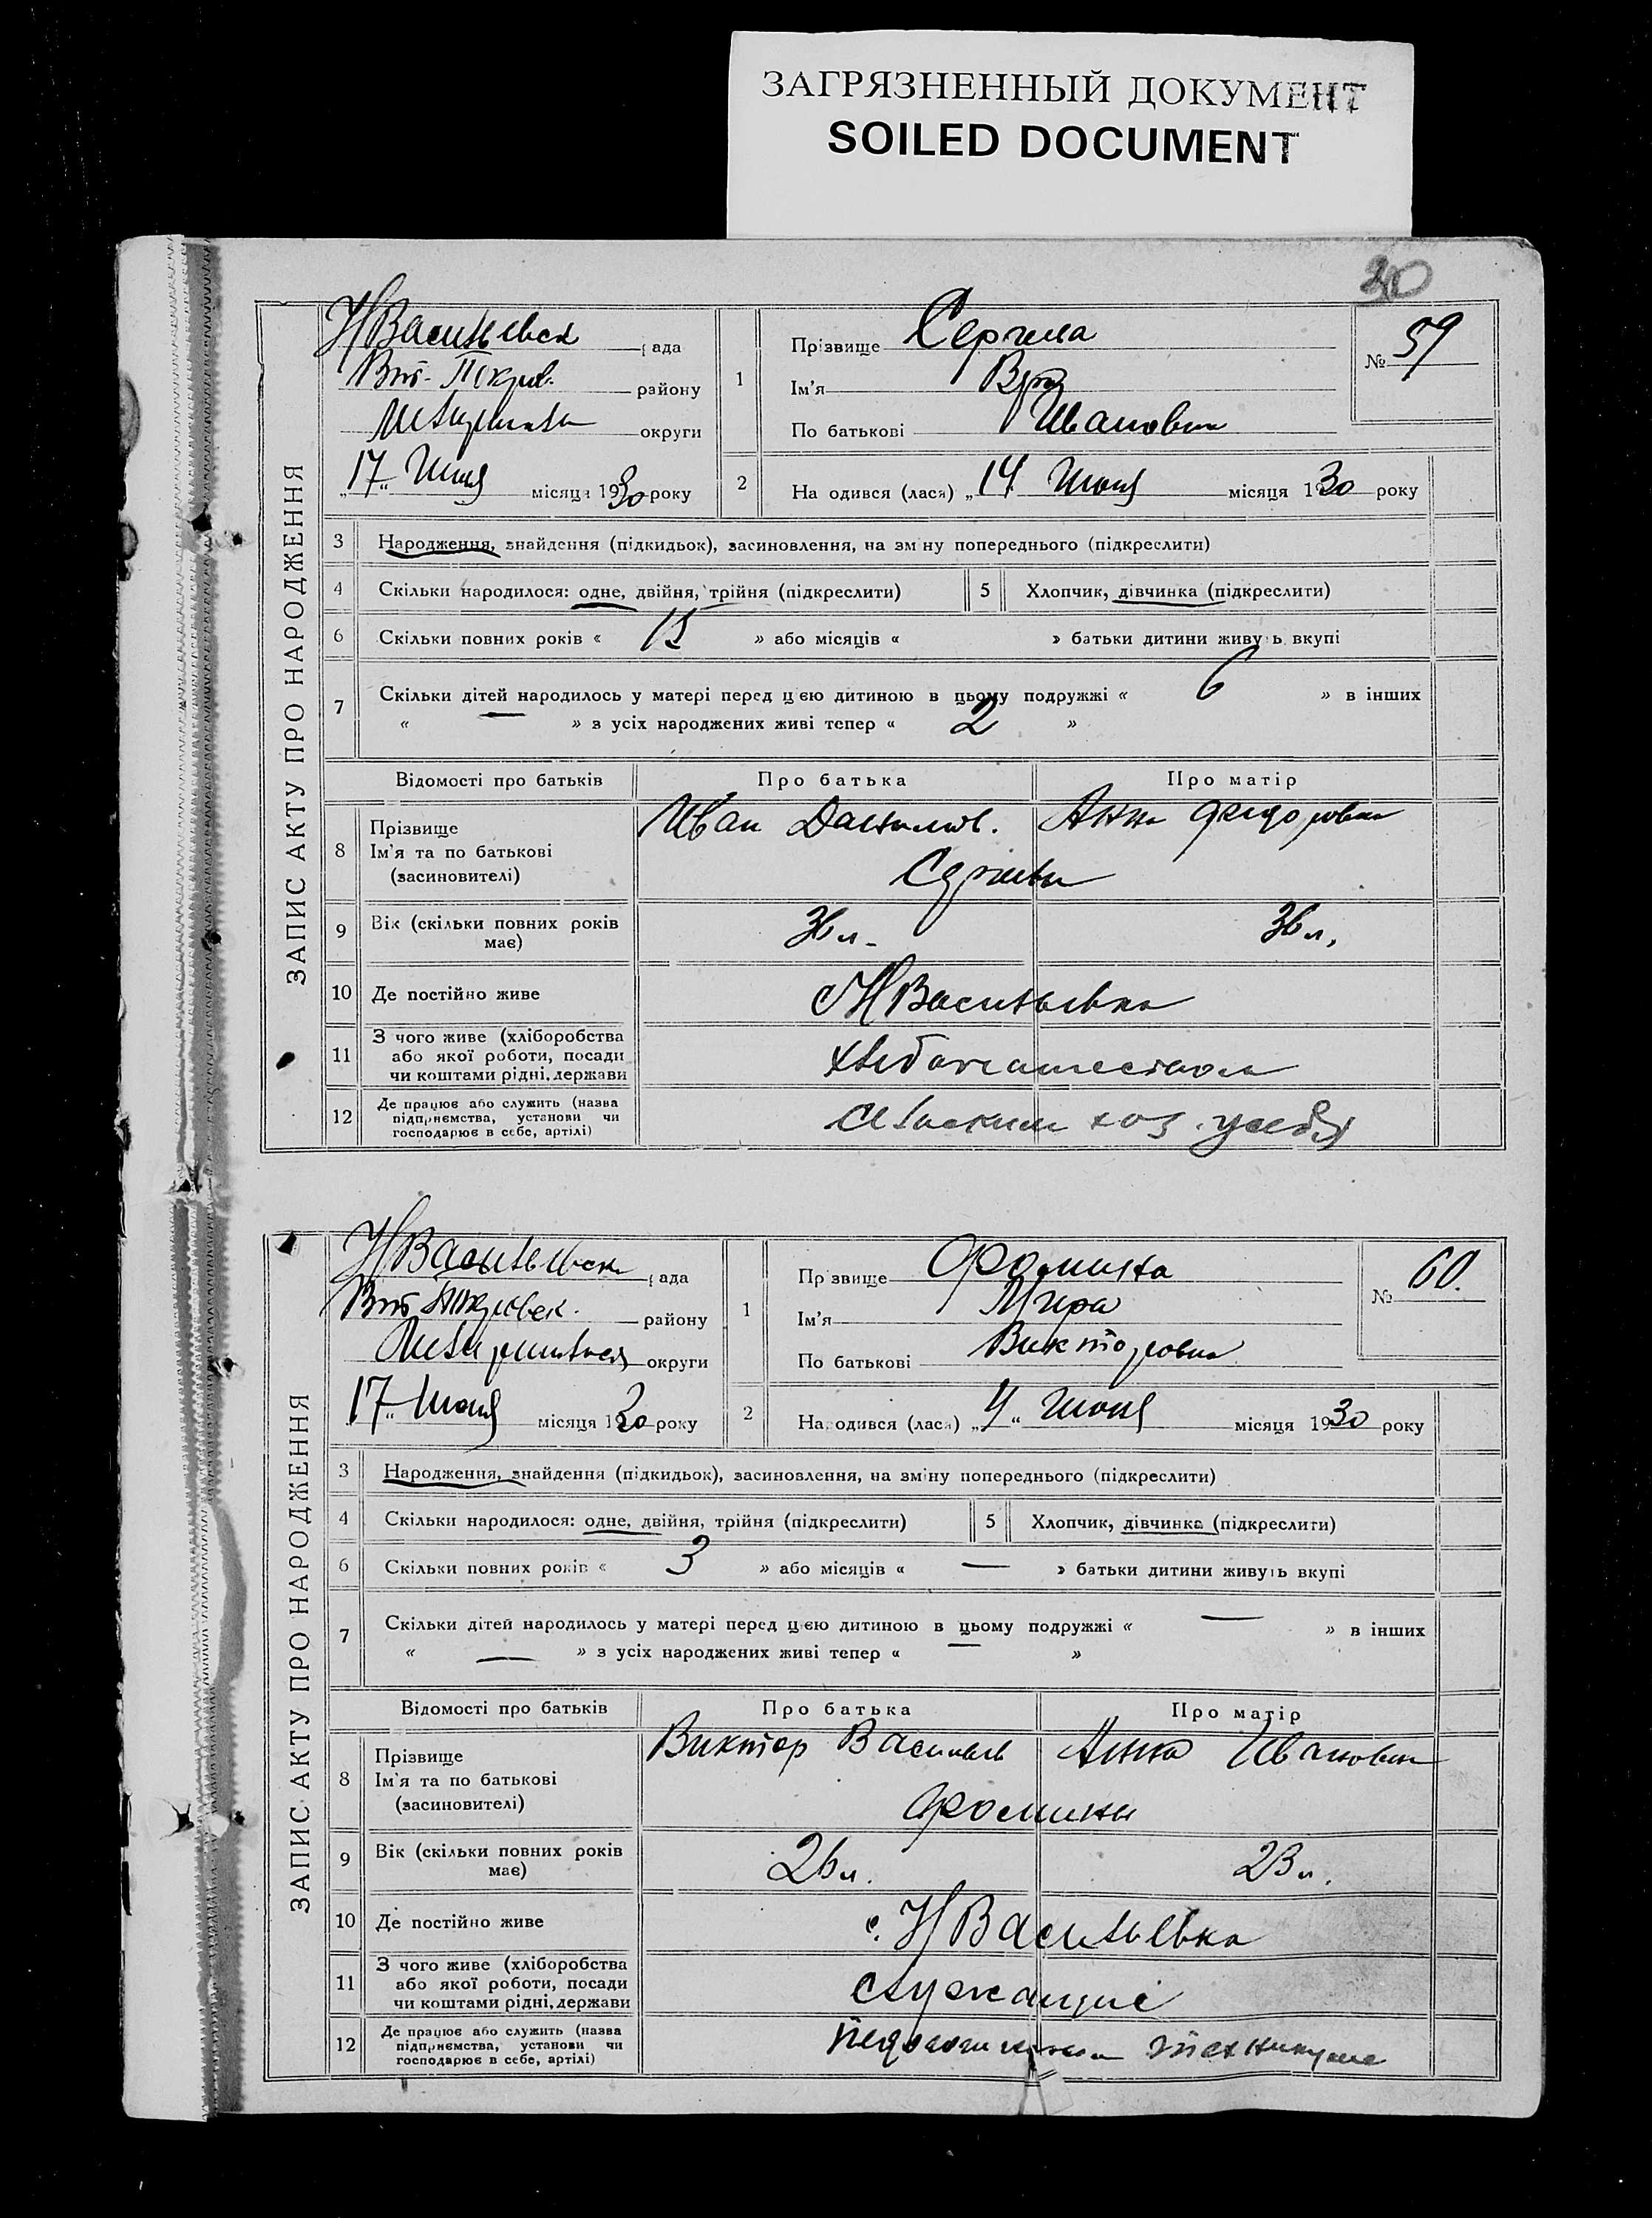 ЗАГРЯЗНЕННЫЙ ДОКУМЕНТ
SOILED DOCUMENT
30
ЗАПИС АКТУ ПРО НАРОДЖЕННЯ
НВасильевск рада
района району
округи
17 місяця 1930 року
1
Прізвище
Ім'я Вера
По батькові Ивановна
№ 59
2
Народився (лася) „14 Июня місяця 1930 року
3 Народження, знайдення (підкидьок), засиновлення, на зміну попереднього (підкреслити)
4 Скільки народилося: одне, двійня, трійня (підкреслити) 5 Хлопчик, дівчинка (підкреслити)
6 Скільки повних років « 15 » або місяців « » батьки дитини живуть вкупі
7 Скільки дітей народилось у матері перед цією дитиною в цьому подружжі « 6 » в інших
« — » з усіх народжених живі тепер « 2 »
Відомості про батьків Про батька Про матір
8 Прізвище
Ім'я та по батькові
(засиновителі)
Иван Данилов. Анна Федоровна
9 Вік (скільки повних років має) 36 л. 36 л.
10 Де постійно живе с НВасильевка
11 З чого живе (хліборобства або якої роботи, посади чи коштами рідні, держави хлебопашеством
12 Де працює або служить (назва підприємства, установи чи господарює в себе, артілі) сельским хоз. у себя
ЗАПИС АКТУ ПРО НАРОДЖЕННЯ
НВасильевск рада
району
округи
17 Июня місяця 1930 року
1
Прізвище Фомина
Ім'я
По батькові Викторовна
№ 60.
2
Народився (лася) „4“ Июня місяця 1930 року
3 Народження, знайдення (підкидьок), засиновлення, на зміну попереднього (підкреслити)
4 Скільки народилося: одне, двійня, трійня (підкреслити) 5 Хлопчик, дівчинка (підкреслити)
6 Скільки повних років « 3 » або місяців « — » батьки дитини живуть вкупі
7 Скільки дітей народилось у матері перед цією дитиною в цьому подружжі « — » в інших
« — » з усіх народжених живі тепер « — »
Відомості про батьків Про батька Про матір
8 Прізвище
Ім'я та по батькові
(засиновителі)
Виктор Васильев Анна Ивановна
Фомины
9 Вік (скільки повних років має) 26 л. 23 л.
10 Де постійно живе с. НВасильевка
11 З чого живе (хліборобства або якої роботи, посади чи коштами рідні, держави служащие
12 Де працює або служить (назва підприємства, установи чи господарює в себе, артілі) техникуме